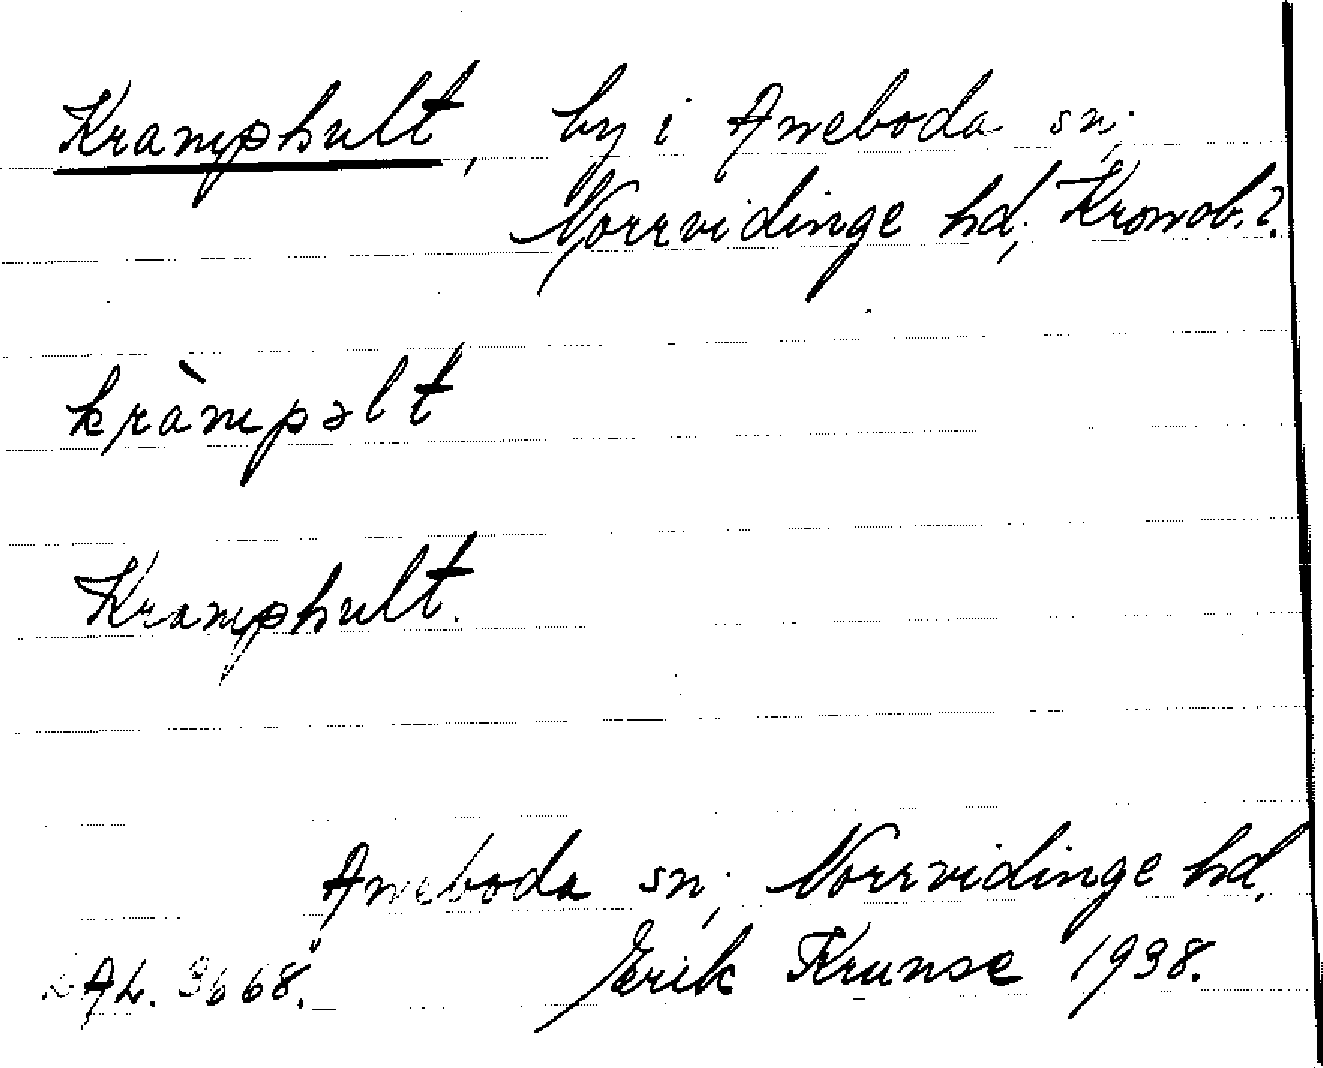 Kramphult, by i Aneboda sn;
Norrvidinge hd; Kronob.?
kràmpəlt
Kramphult.
Aneboda sn; Norrvidinge hd.
3668. Erik Krunse 1938.